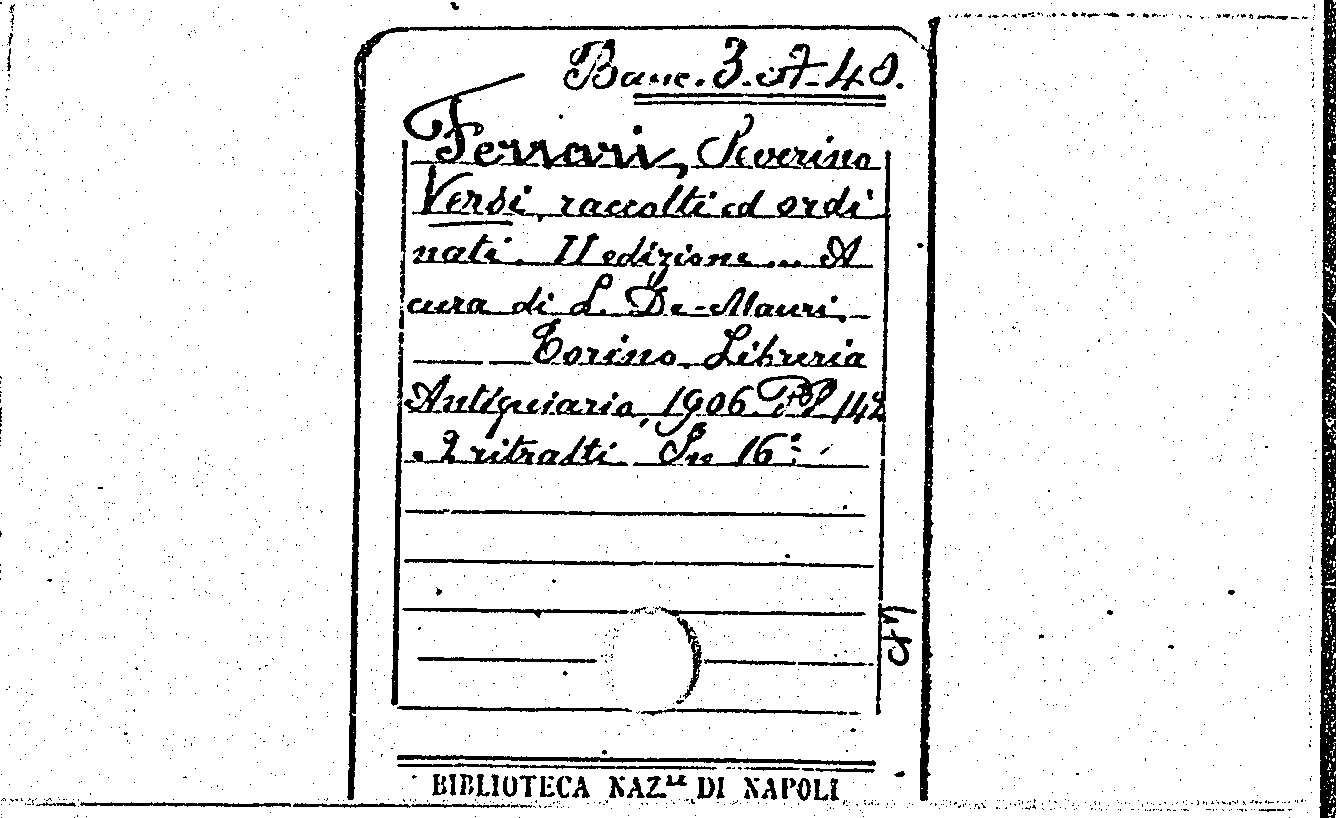 Banc. 3. A. 40.
Ferrari, Severino
Versi, raccolti ed ordi
nati. II edizione ... A
cura di L. De-Mauri.
Torino, Libreria
Antiquaria, 1906. PP 142
. 2 ritratti. In 16°.
BIBLIOTECA NAZ.LE DI NAPOLI